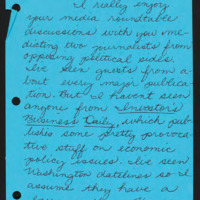 I really enjoy
your media roundtable
discussions with you me-
diating two journalists from
opposing political sides.
I've seen guests from a-
bout every major publica-
tion. But I haven't seen
anyone from Investor's
Business Daily, which pub-
lishes some pretty provoca-
tive stuff on economic
policy issues. I've seen
Washington datelines so I
assume they have a